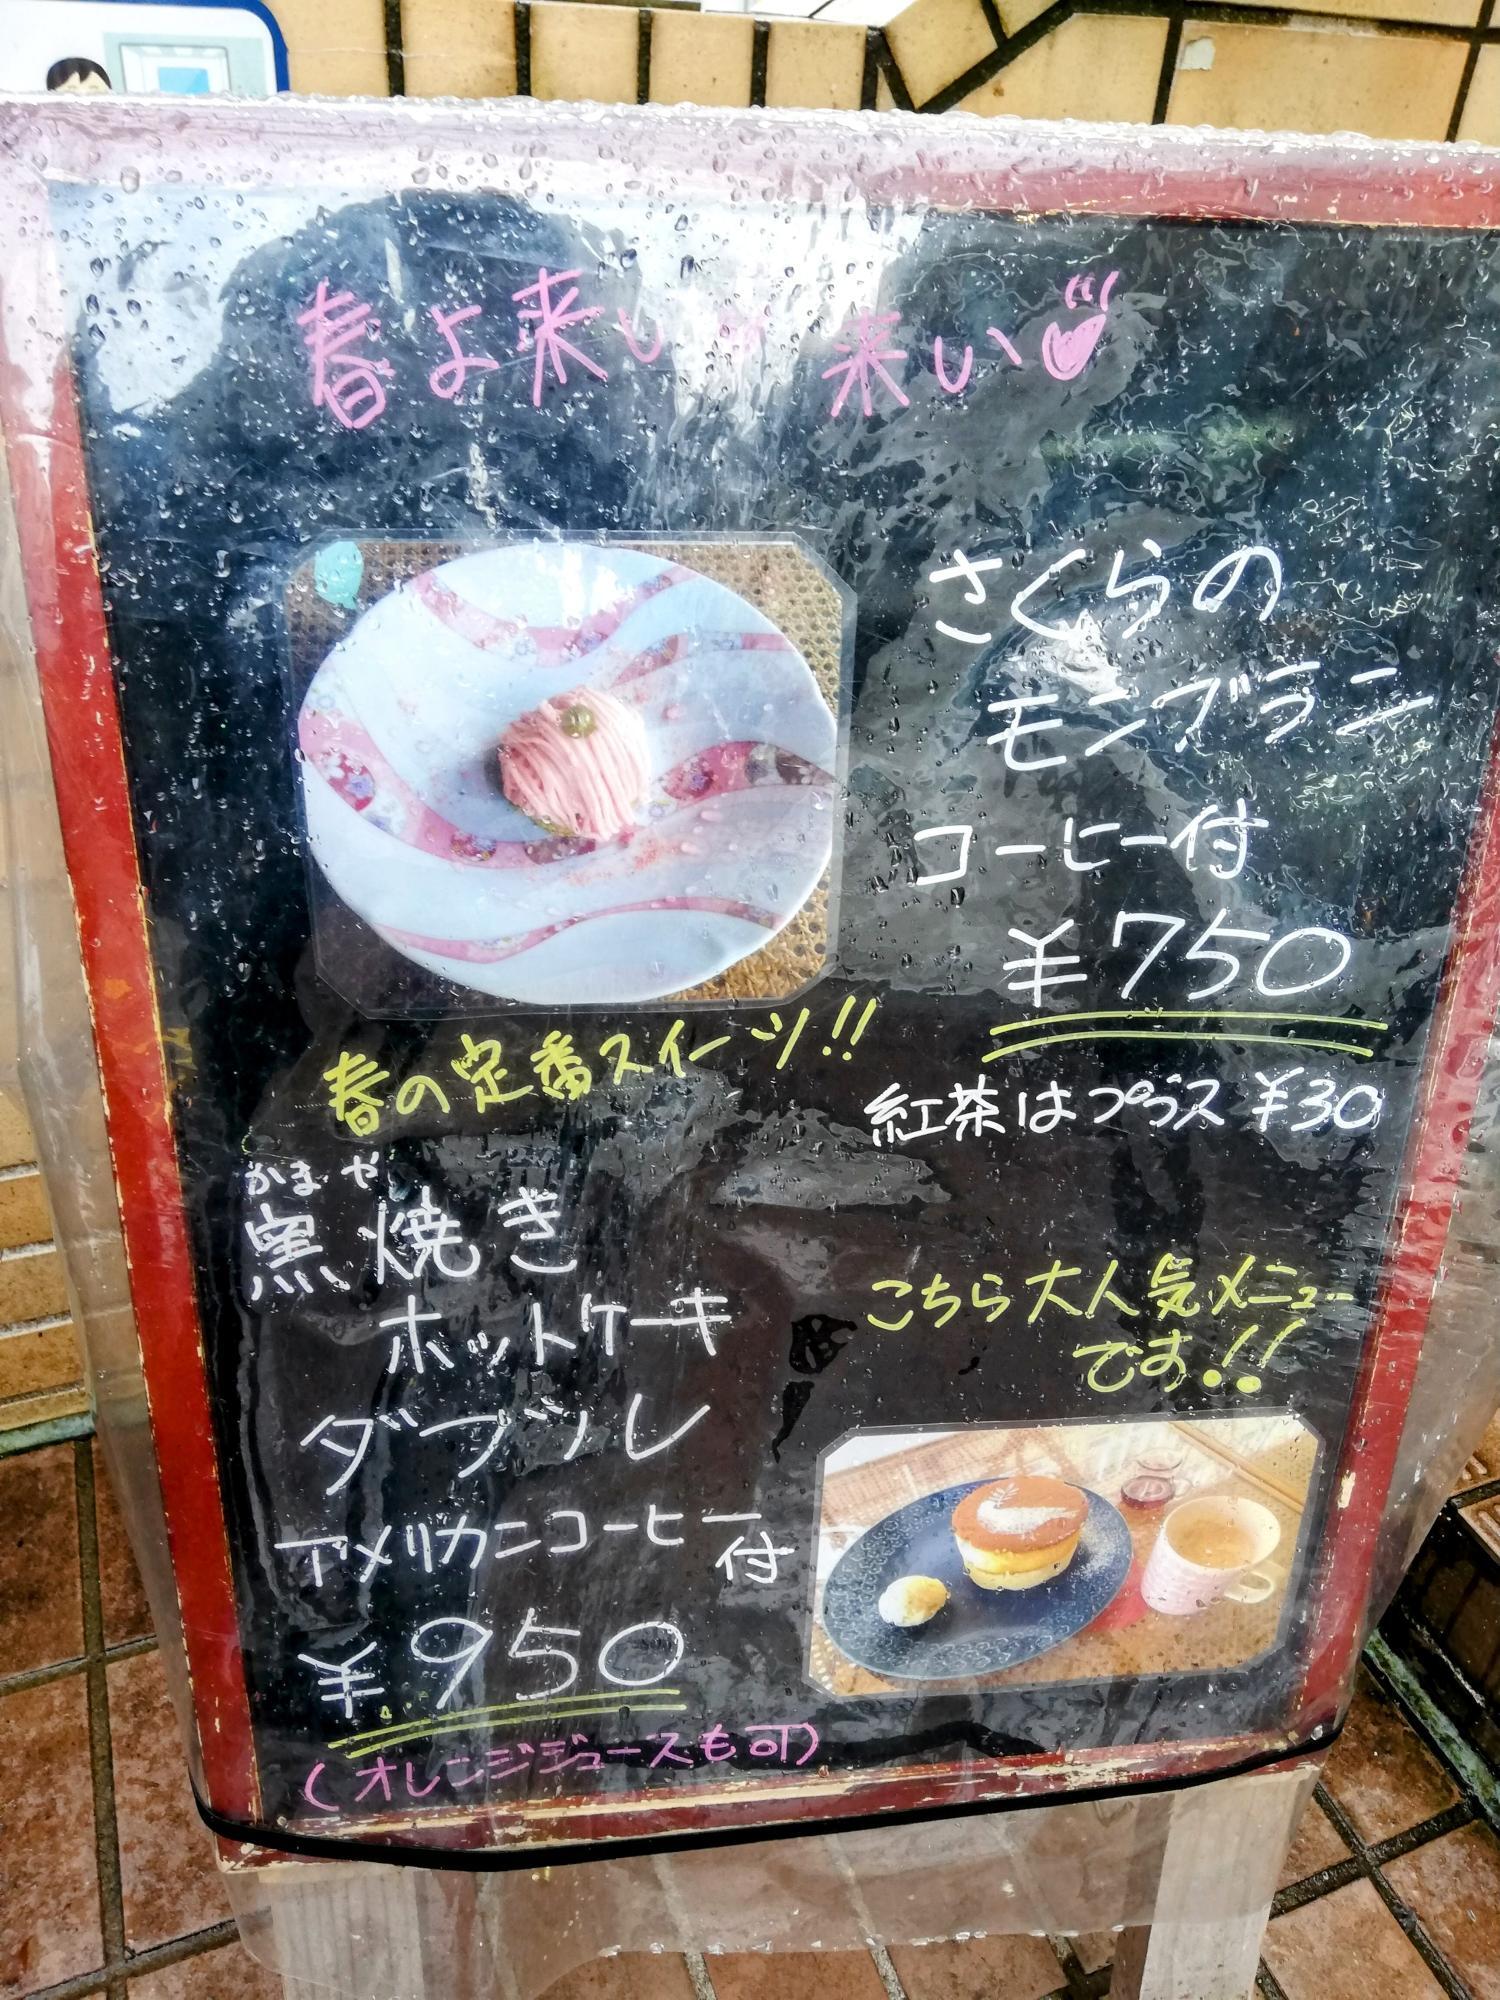 春よ来い 来い
さくらの
モンブラン
コーヒー付
¥750
春の定番スイーツ!!
紅茶はプラス ¥30
かま や
窯焼き
ホットケーキ
ダブル
アメリカンコーヒー付
¥950
(オレンジジュースも可)
こちら大人気メニュー
です!!